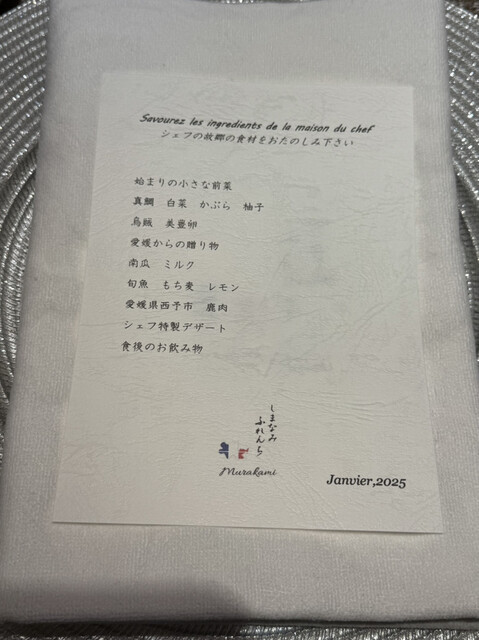 Savourez les ingredients de la maison du chef
シェフの故郷の食材をおたのしみ下さい
始まりの小さな前菜
真鯛　白菜　かぶら　柚子
烏賊　美豊卵
愛媛からの贈り物
南瓜　ミルク
旬魚　もち麦　レモン
愛媛県西予市　鹿肉
シェフ特製デザート
食後のお飲み物
しまなみ
ふれんち
Murakami
Janvier,2025